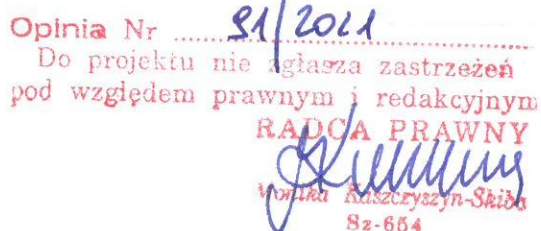 Opinia Nr 91/2021
Do projektu nie zgłasza zastrzeżeń
pod względem prawnym i redakcyjnym
RADCA PRAWNY
Monika Kaszczyszyn-Skiba
Sz-654